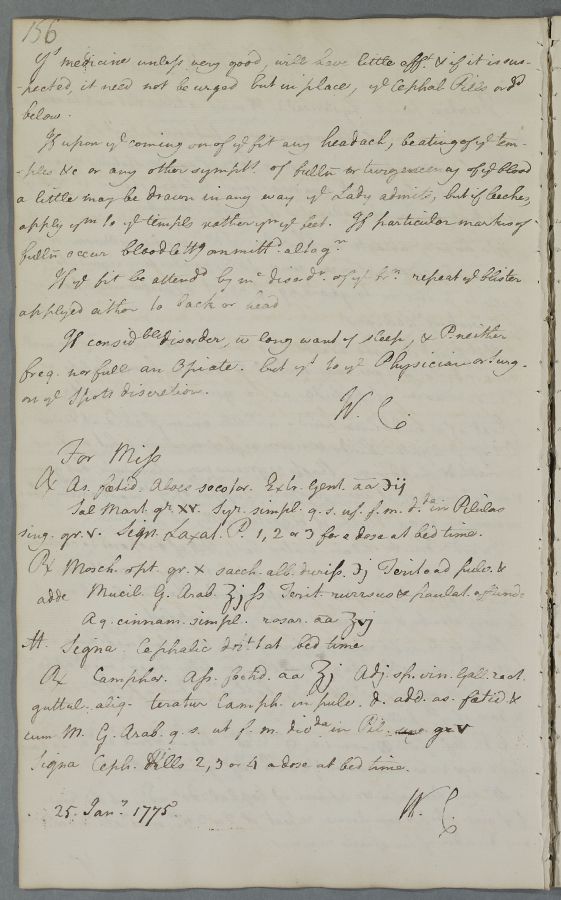 156
yᵉ medicine unless very good, will have little effᵗ. & if it is sus-
-pected, it need not be urged but in place, yᵉ Cephal Pills ordᵈ
below.
If upon yᵉ coming on of yᵉ fit any headach, beating of yᵉ tem-
-ples &c or any other symptˢ. of fulln or turgescency of yᵉ blood
a little may be drawn in any way yᵉ Lady admits, but if leeches,
apply yᵐ to yᵉ temples rather yⁿ yᵉ feet. If particular marks of
fulln occur bloodlettᵍ omittᵈ. altogʳ
If yᵉ fit be attendᵈ by mᶜ disordʳ. of yᵉ brⁿ. repeat yᵉ blister
applyed either to back or head
If considᵇˡᵉ disorder, wᵗ long want of sleep, & P. neither
freq. nor full an Opiate. but yˢ to yᵉ Physician or surg-
on yᵉ spots discretion.
W. C.
For Miss
℞ As. fœtid. Aloes socotor. Extr. Gent. aa ʒij
Sal Mart. gr. xv. Syr. simpl. q. s. uf. f. m. d.ᵈᵃ in Pilulas
sing. gr. v. Sign. Laxat. P. 1, 2 or 3 for a dose at bed time.
℞ Mosch. opt. gr. x sacch. alb. duriss. ʒj Terito ad pulv. &
adde Mucil. G. Arab. ʒj ss Terit. rursus & paulat. affunde
Aq. cinnam. simpl. rosar. aa ʒvj
M. Signa Cephalic drᵗ. at bed time
℞ Camphor. Ass. fœtid. aa ʒj Adj. sp. vin. Gall. rect.
guttul. aliq. teratur Camph. in pulv. d. add. as. fœtid &
cum M. G. Arab. q. s. ut f. m. divᵈᵃ in Pil. gr v
Signa Ceph. Pills 2, 3 or 4 a dose at bed time.
25. Janʸ. 1775.
W. C.